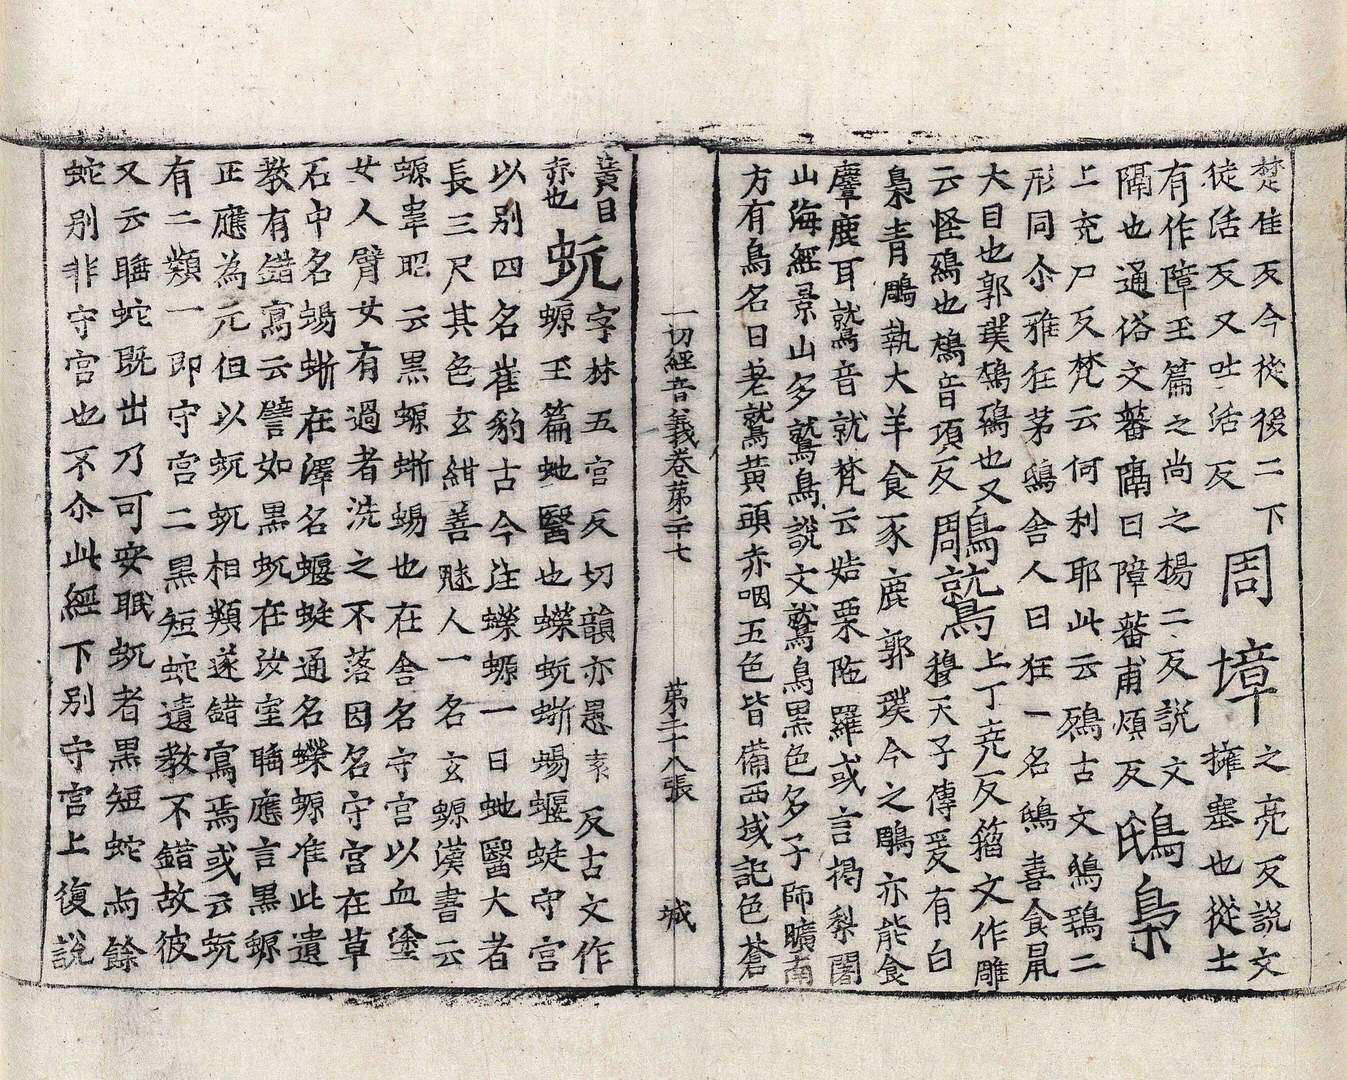 楚隹反今從後二下
徒活反又吐活反
周墇
之亮反説文
擁塞也從土
有作障玉篇之尚之楊二反説文
隔也通俗文蕃隔曰障蕃甫煩反
鵄梟
上充尸反梵云何利耶此云鵄古文鵄二
形同尒雅狂茅鵄舍人曰狂一名鵄喜食鼠
大目也郭璞鵂鶹也又
云怪鵄也音項反
鵰鷲
上丁尭反籀文作雕
穆天子傳爰有白
梟青鵰執大羊食豕鹿郭璞今之鵰亦能食
麞鹿耳鷲音就梵云姞栗陁羅或言揭梨闍
山海經景山多鷲鳥説文鷲鳥黒色多子師曠南
方有鳥名曰老鷲黄頭赤咽五色皆備西域記色蒼
一切經音義卷第二十七 第二十八張 城
黄目
赤也
蚖
字林五官反切韻亦愚素反古文作
螈玉篇虵醫也蠑蚖蜥蜴蝘蜓守宫
以別四名崔豹古今注蠑螈一曰虵醫大者
長三尺其色玄紺善魅人一名玄螈漢書云
螈韋昭云黒螈蜥蜴也在舍名守宫以血塗
女人臂女有過者洗之不落因名守宫在草
石中名蜴蜥在澤名蝘蜓通名蠑螈准此遺
教有錯寫云譬如黒蚖在汝室睡應言黒螈
正應為元但以蚖蚖相類遂錯寫焉或云蚖
有二類一即守宫二黒短蛇遺教不錯故彼
又云睡蛇既出乃可安眠蚖者黒短蛇尚餘
蛇別非守宫也不尒此經下別守宫上復説